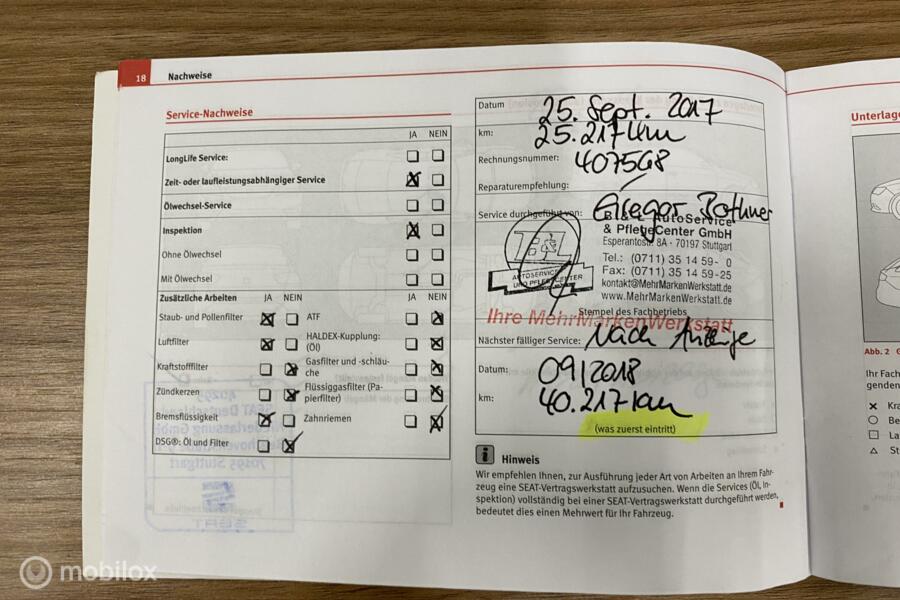 18 Nachweise
Service-Nachweise
JA NEIN
LongLife Service:
Zeit- oder laufleistungsabhängiger Service
Ölwechsel-Service
Inspektion
Ohne Ölwechsel
Mit Ölwechsel
Zusätzliche Arbeiten JA NEIN JA NEIN
Staub- und Pollenfilter ATF
Luftfilter HALDEX-Kupplung: (Öl)
Kraftstofffilter Gasfilter und -schläu-
che
Zündkerzen Flüssiggasfilter (Pa-
pierfilter)
Bremsflüssigkeit Zahnriemen
DSG®: Öl und Filter
Datum 25. Sept. 2017
km: 25.217 km
Rechnungsnummer: 407568
Reparaturempfehlung:
Service durchgeführt von: Gregor Bothner
B & L AutoService
& PflegeCenter GmbH
Esperantostr. 8A - 70197 Stuttgart
Tel.: (0711) 35 14 59- 0
Fax: (0711) 35 14 59-25
kontakt@MehrMarkenWerkstatt.de
www.MehrMarkenWerkstatt.de
AUTOSERVICE
UND PFLEGECENTER
Stempel des Fachbetriebs
Ihre MehrMarkenWerkstatt
Nächster fälliger Service: Nach Anzeige
Datum: 09/2018
km: 40.217 km
(was zuerst eintritt)
i Hinweis
Wir empfehlen Ihnen, zur Ausführung jeder Art von Arbeiten an Ihrem Fahr-
zeug eine SEAT-Vertragswerkstatt aufzusuchen. Wenn die Services (Öl, In-
spektion) vollständig bei einer SEAT-Vertragswerkstatt durchgeführt werden,
bedeutet dies einen Mehrwert für Ihr Fahrzeug.
Unterlage
Abb. 2 G
Ihr Fach
genden
Kra
Be
La
St
mobilox